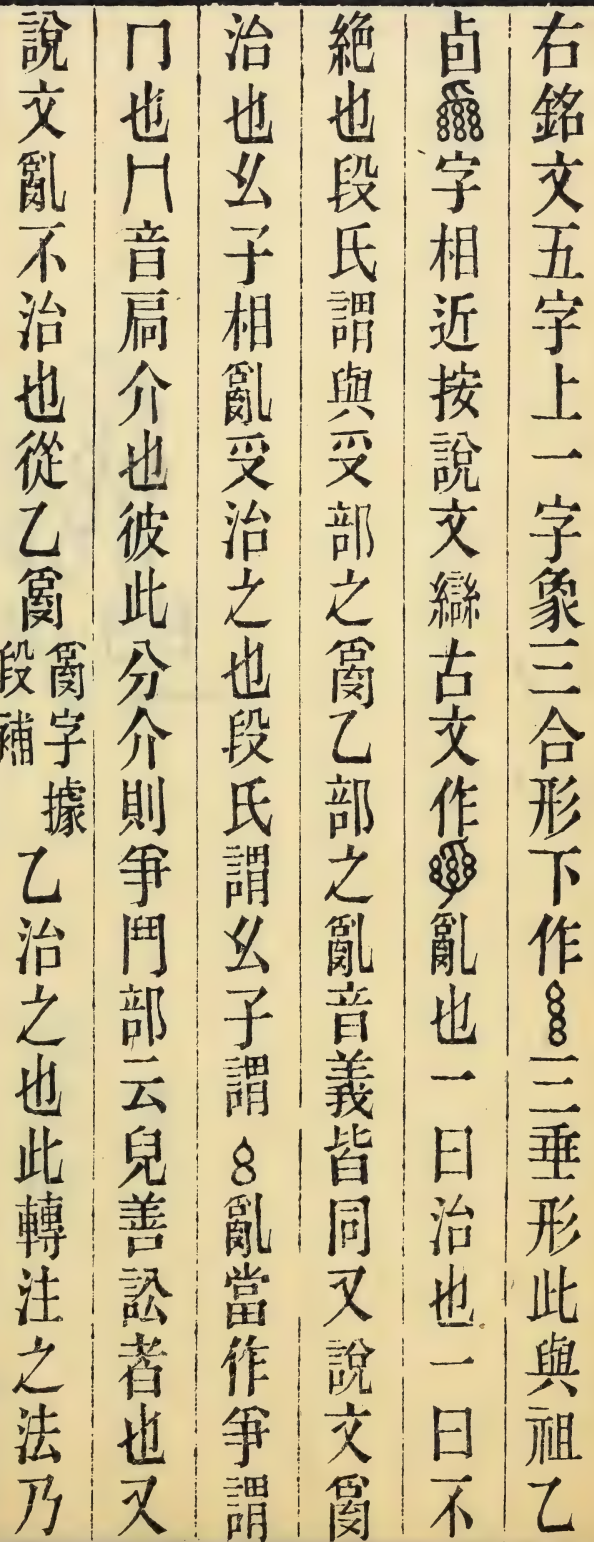 右銘文五字上一字象三合形下作三垂形此與祖乙
卣字相近按說文䜌古文作亂也一曰治也一曰不
絕也段氏謂與𠬪部之𤔔乙部之亂音義皆同又說文𤔔
治也幺子相亂𠬪治之也段氏謂幺子謂亂當作爭謂
冂也冂音扃介也彼此分介則爭鬥部云兒善訟者也又
說文亂不治也從乙𤔔𤔔字據段補乙治之也此轉注之法乃